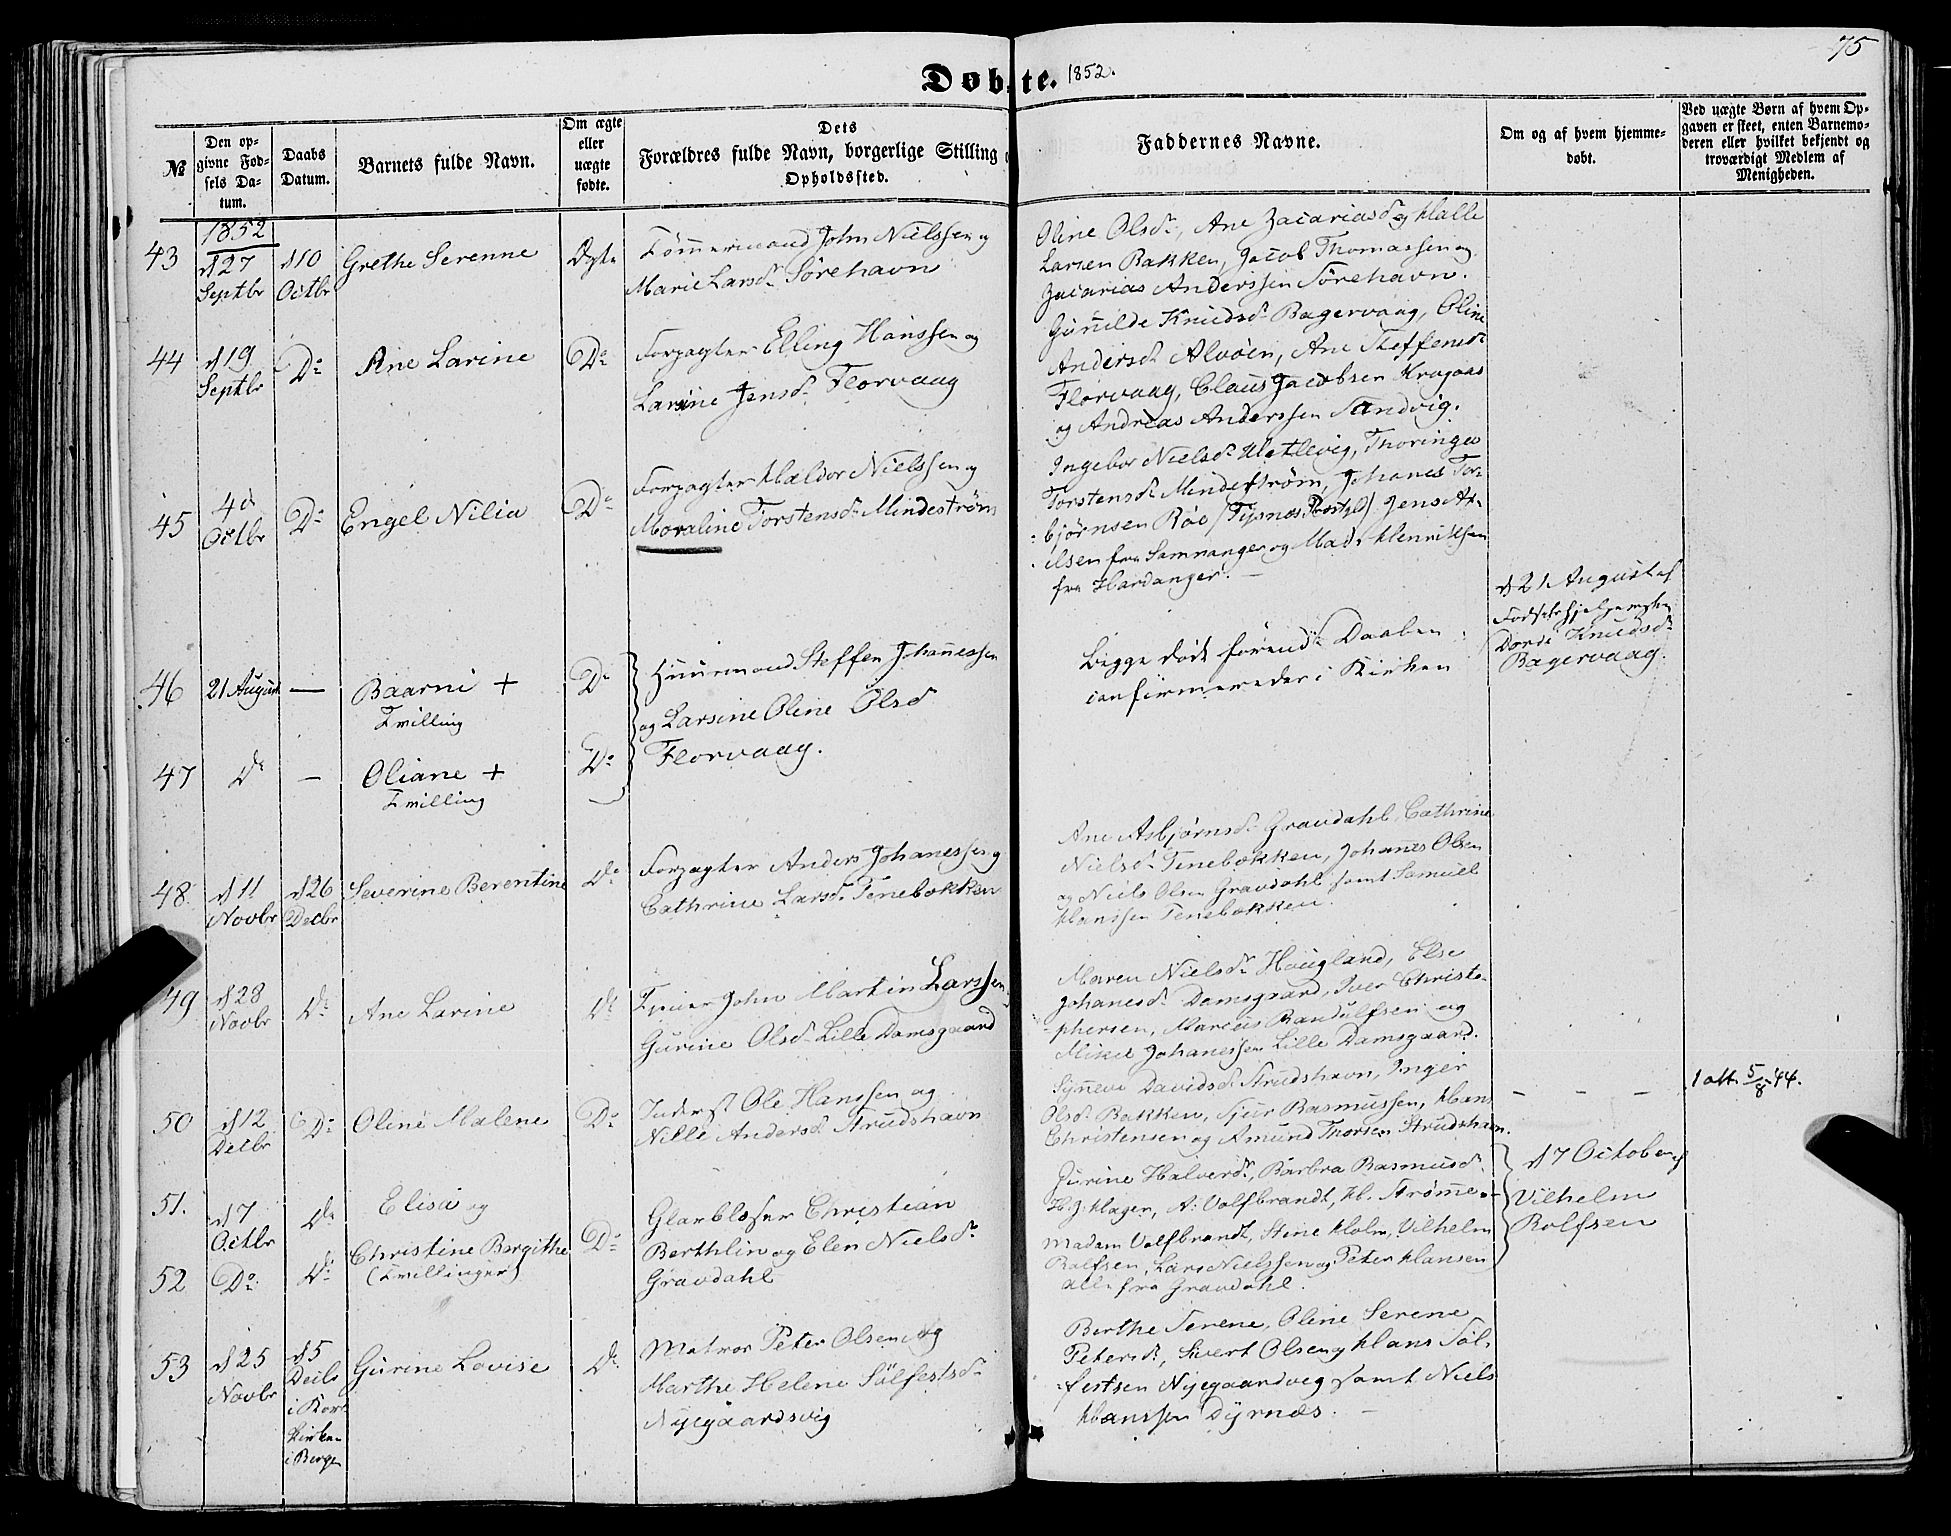 75
Døbte. 1852.
№
Den op-
givne Fød-
sels Da-
tum.
Daabs
Datum.
Barnets fulde Navn.
Om ægte
eller
uægte
fødte.
Dets
Forældres fulde Navn, borgerlige Stilling
Opholdssted.
Faddernes Navne.
Om og af hvem hjemme-
døbt.
Ved uægte Børn af hvem Op-
gaven er skeet, enten Barnemo-
deren eller hvilket bekjendt og
troværdigt Medlem af
Menigheden.
1852
43
d 27
Septbr
d 10
Octbr
Grethe Serenne
Ægte
Tømmermand John Nielssen og
Marie Larsd. Sørehavn
Oline Olsd., Ane Zacariasd. og Halle
Larsen Bakken, Jacob Thomassen og
Zacarias Anderssen Sørehavn.
44
d 19
Septbr
Do
Ane Larine
Do
Forpagter Elling Hanssen og
Larsine Jensd. Florvaag
Gunnilde Knudsd. Bagervaag, Oline
Andersd. Alvøen, Ane Steffensd.
Florvaag, Claus Jacobsen Kragaas
og Andreas Anderssen Sandvig.
45
4d
Octbr
Do
Engel Nilia
Do
Forpagter Haldor Nielssen og
Moraline Torstensd. Mindestrøm
Ingebor Nielsd. Hetlevig, Thoringa
Torstensd. Mindestrøm, Johanes Tor-
bjørnsen Røe (Tysnes Prstgl). Jens At-
elsen fra Samnanger og Mads Henriksen
fra Hardanger. —
46
21 August
—
Baarni +
Tvilling
Do
Huusmand Steffen Johanessen
og Larsine Oline Olsd
Florvaag.
Begge døde førend Daaben
confirmeredes i Kirken
d 21 August af
Fødselshjelpersken
Dorde Knudsd.
Bagervaag.
47
Do
—
Oliane +
Tvilling
Do
48
d 11
Novbr
d 26
Decbr
Severine Berentine
Do
Forpagter Anders Johanessen og
Cathrine Larsd. Tenebekken
Ane Asbjørnsd. Gravdahl, Cathrine
Nielsd. Tenebekken, Johanes Olsen
og Niels Olsen Gravdahl samt Samuel
Hanssen Tenebekken.
49
d 28
Novbr
Do
Ane Larine
Do
John Martin Larssen
Gurine Olsd. Lille Damsgaard
Maren Nielsd. Hougland, Else
Johanesd. Damsgaard, Iver Christo-
phersen, Marcus Randulfsen og
Mikel Johanessen Lille Damsgaard.
50
d 12
Decbr
Do
Oline Malene
Do
Inderst Ole Hanssen og
Nille Andersd. Strudshavn
Synneve Davidsd. Strudshavn, Inger
Olsd. Bakken, Sjur Rasmussen, Hans
Christensen og Amund Thorsen Strudshavn.
— — —
1 att. 5/8 44.
51.
d 7
Octbr
Do
Elisa og
Glarblæser Christian
Jurine Halverd., Barbra Rasmusd.
H. J. Hagen, A: Volfbrandt, H. Strømme
d 7 October af
52
Do
Do
Christine Bergithe
(Tvillinger)
Do
Berthlin og Elen Nielsd.
Gravdahl
Madam Volfbrandt, Stine Holm, Vilhelm
Rolfsen, Lars Nielssen og Peter Hansen
alle fra Gravdahl.
Vilhelm
Rolfsen
53
d 25
Novbr
d 5
Decbr
i Kors
Kirken
i Bergen
Gurine Lovise
Do
Matros Peter Olsen og
Marthe Helene Sølfestsd.
Nyegaardsvig
Berthe Serene, Oline Serene
Petersd., Sivert Olsen og Hans Søl-
festsen Nyegaardsveg samt Niels
Hanssen Dyrnes. —